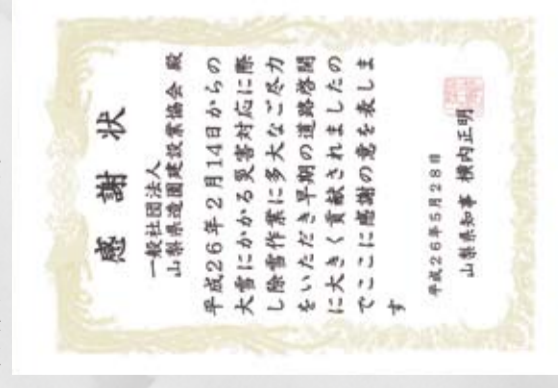 感謝状
一般社団法人
山梨県造園建設業協会 殿
平成26年2月14日からの
大雪にかかる災害対応に際
し除雪作業に多大なご尽力
をいただき早期の道路啓開
に大きく貢献されましたの
でここに感謝の意を表しま
す
平成26年5月28日
山梨県知事 横内正明